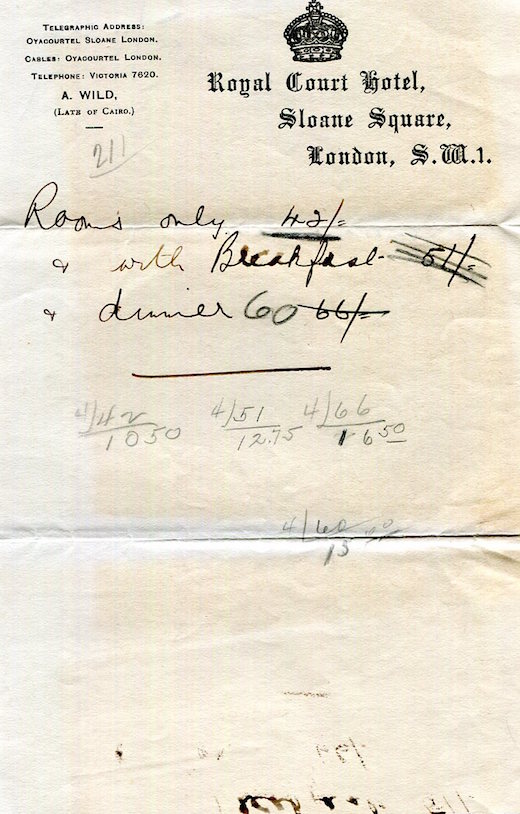 TELEGRAPHIC ADDRESS:
OYACOURTEL SLOANE LONDON.
CABLES: OYACOURTEL LONDON.
TELEPHONE: VICTORIA 7620.
A. WILD,
(LATE OF CAIRO.)
Royal Court Hotel,
Sloane Square,
London, S.W.1.
211
Rooms only 42/=
& with Breakfast - 51/=
& dinner 60 66/=
4/42 4/51 4/66
1050 12.75 1650
4/60
15